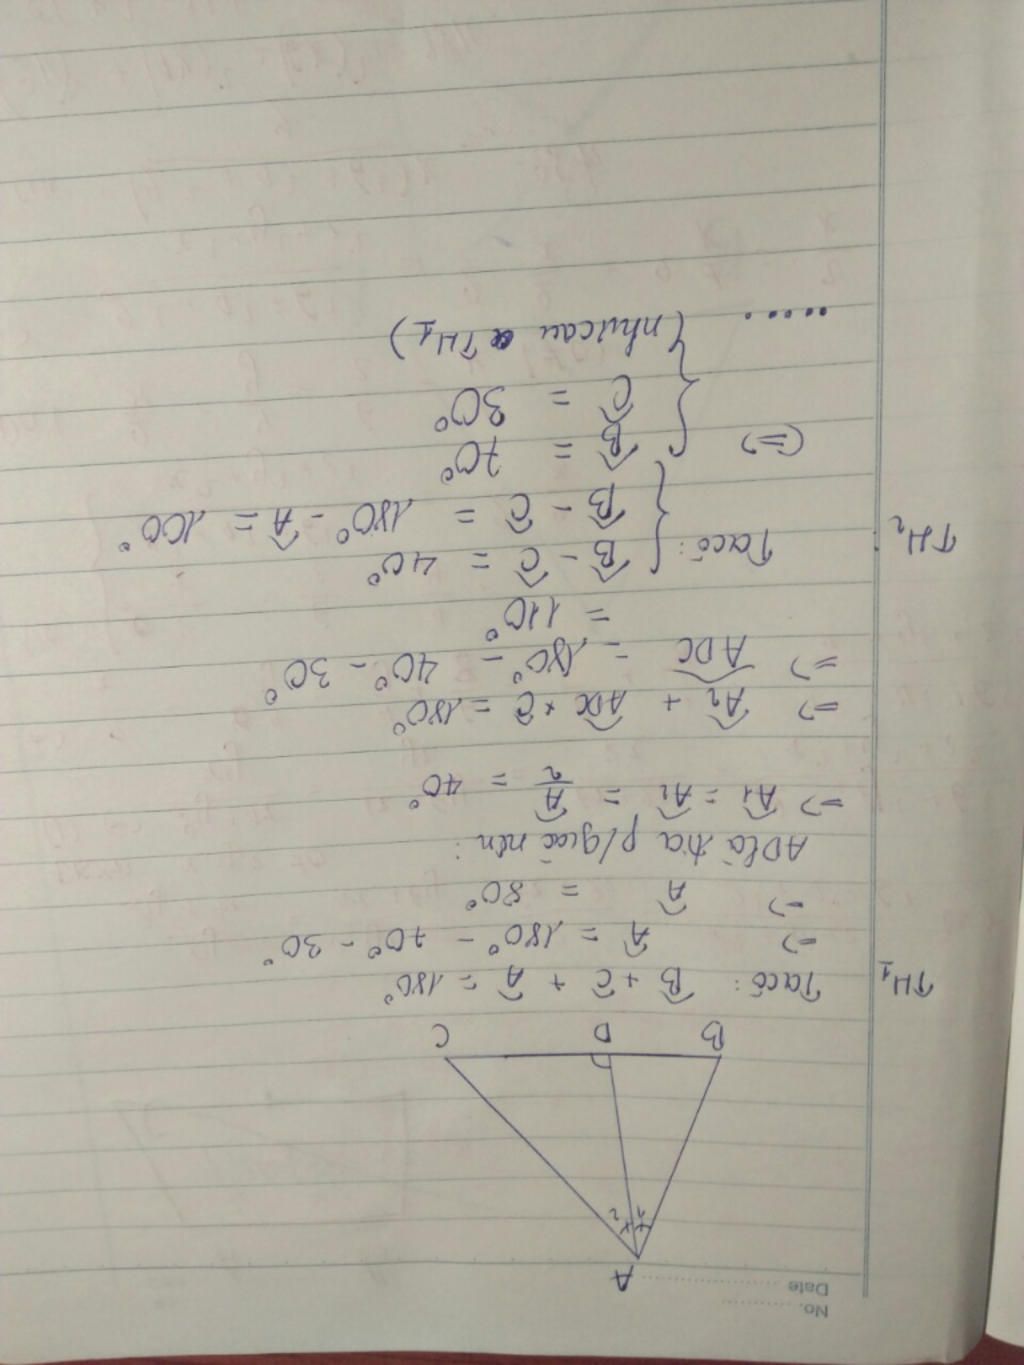 No. ............
Date ......................
A
1 2
B D C
TH1 Ta có: B̂ + Ĉ + Â = 180°
=> Â = 180° - 70° - 30°
=> Â = 80°
AD là tia p/giác nên:
=> Â1 = Â2 = Â/2 = 40°
=> Â2 + ADC + Ĉ = 180°
=> ADC = 180° - 40° - 30°
= 110°
TH2 Ta có: { B̂ - Ĉ = 40°
B̂ - Ĉ = 180° - Â = 100°
(=> { B̂ = 70°
Ĉ = 30°
..... (như câu a TH1)